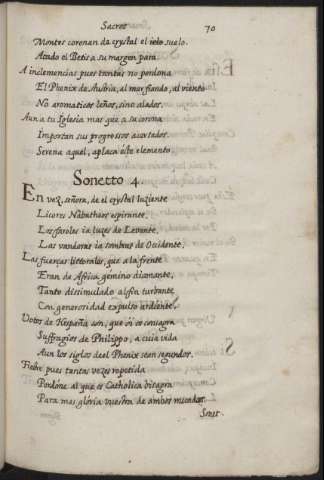 Sacros 70
Montes coronan de crystal el ielo suelo.
Atado el Betis a su margen para
A inclemencias pues tantas no perdona
El Phenix de Austria, al mar fiando, al viento
No aromaticos leños, sino alados.
Aun a tu Iglesia mas que a su corona
Importan sus progressos acertados.
Serena aquel, aplaca este elemento
Sonetto 4
En vez, señora, de el crystal luziente
Licores Nabatheos espirante,
Los faroles ia luzes de Levante,
Las vanderas ia sombras de Occidente,
Las fuerças littorales, que a la frente
Eran de Affrica gemino diamante,
Tanto dissimulado al fin turbante
Con generosidad expulso ardiente,
Votos de Hespaña son, que oi os consagra
Suffragios de Philippo, a cuia vida
Aun los siglos de el Phenix sean segundos.
Fiebre pues tantas vezes repetida
Perdone al que es Catholica
Para mas gloria vuestra de ambos mundos.